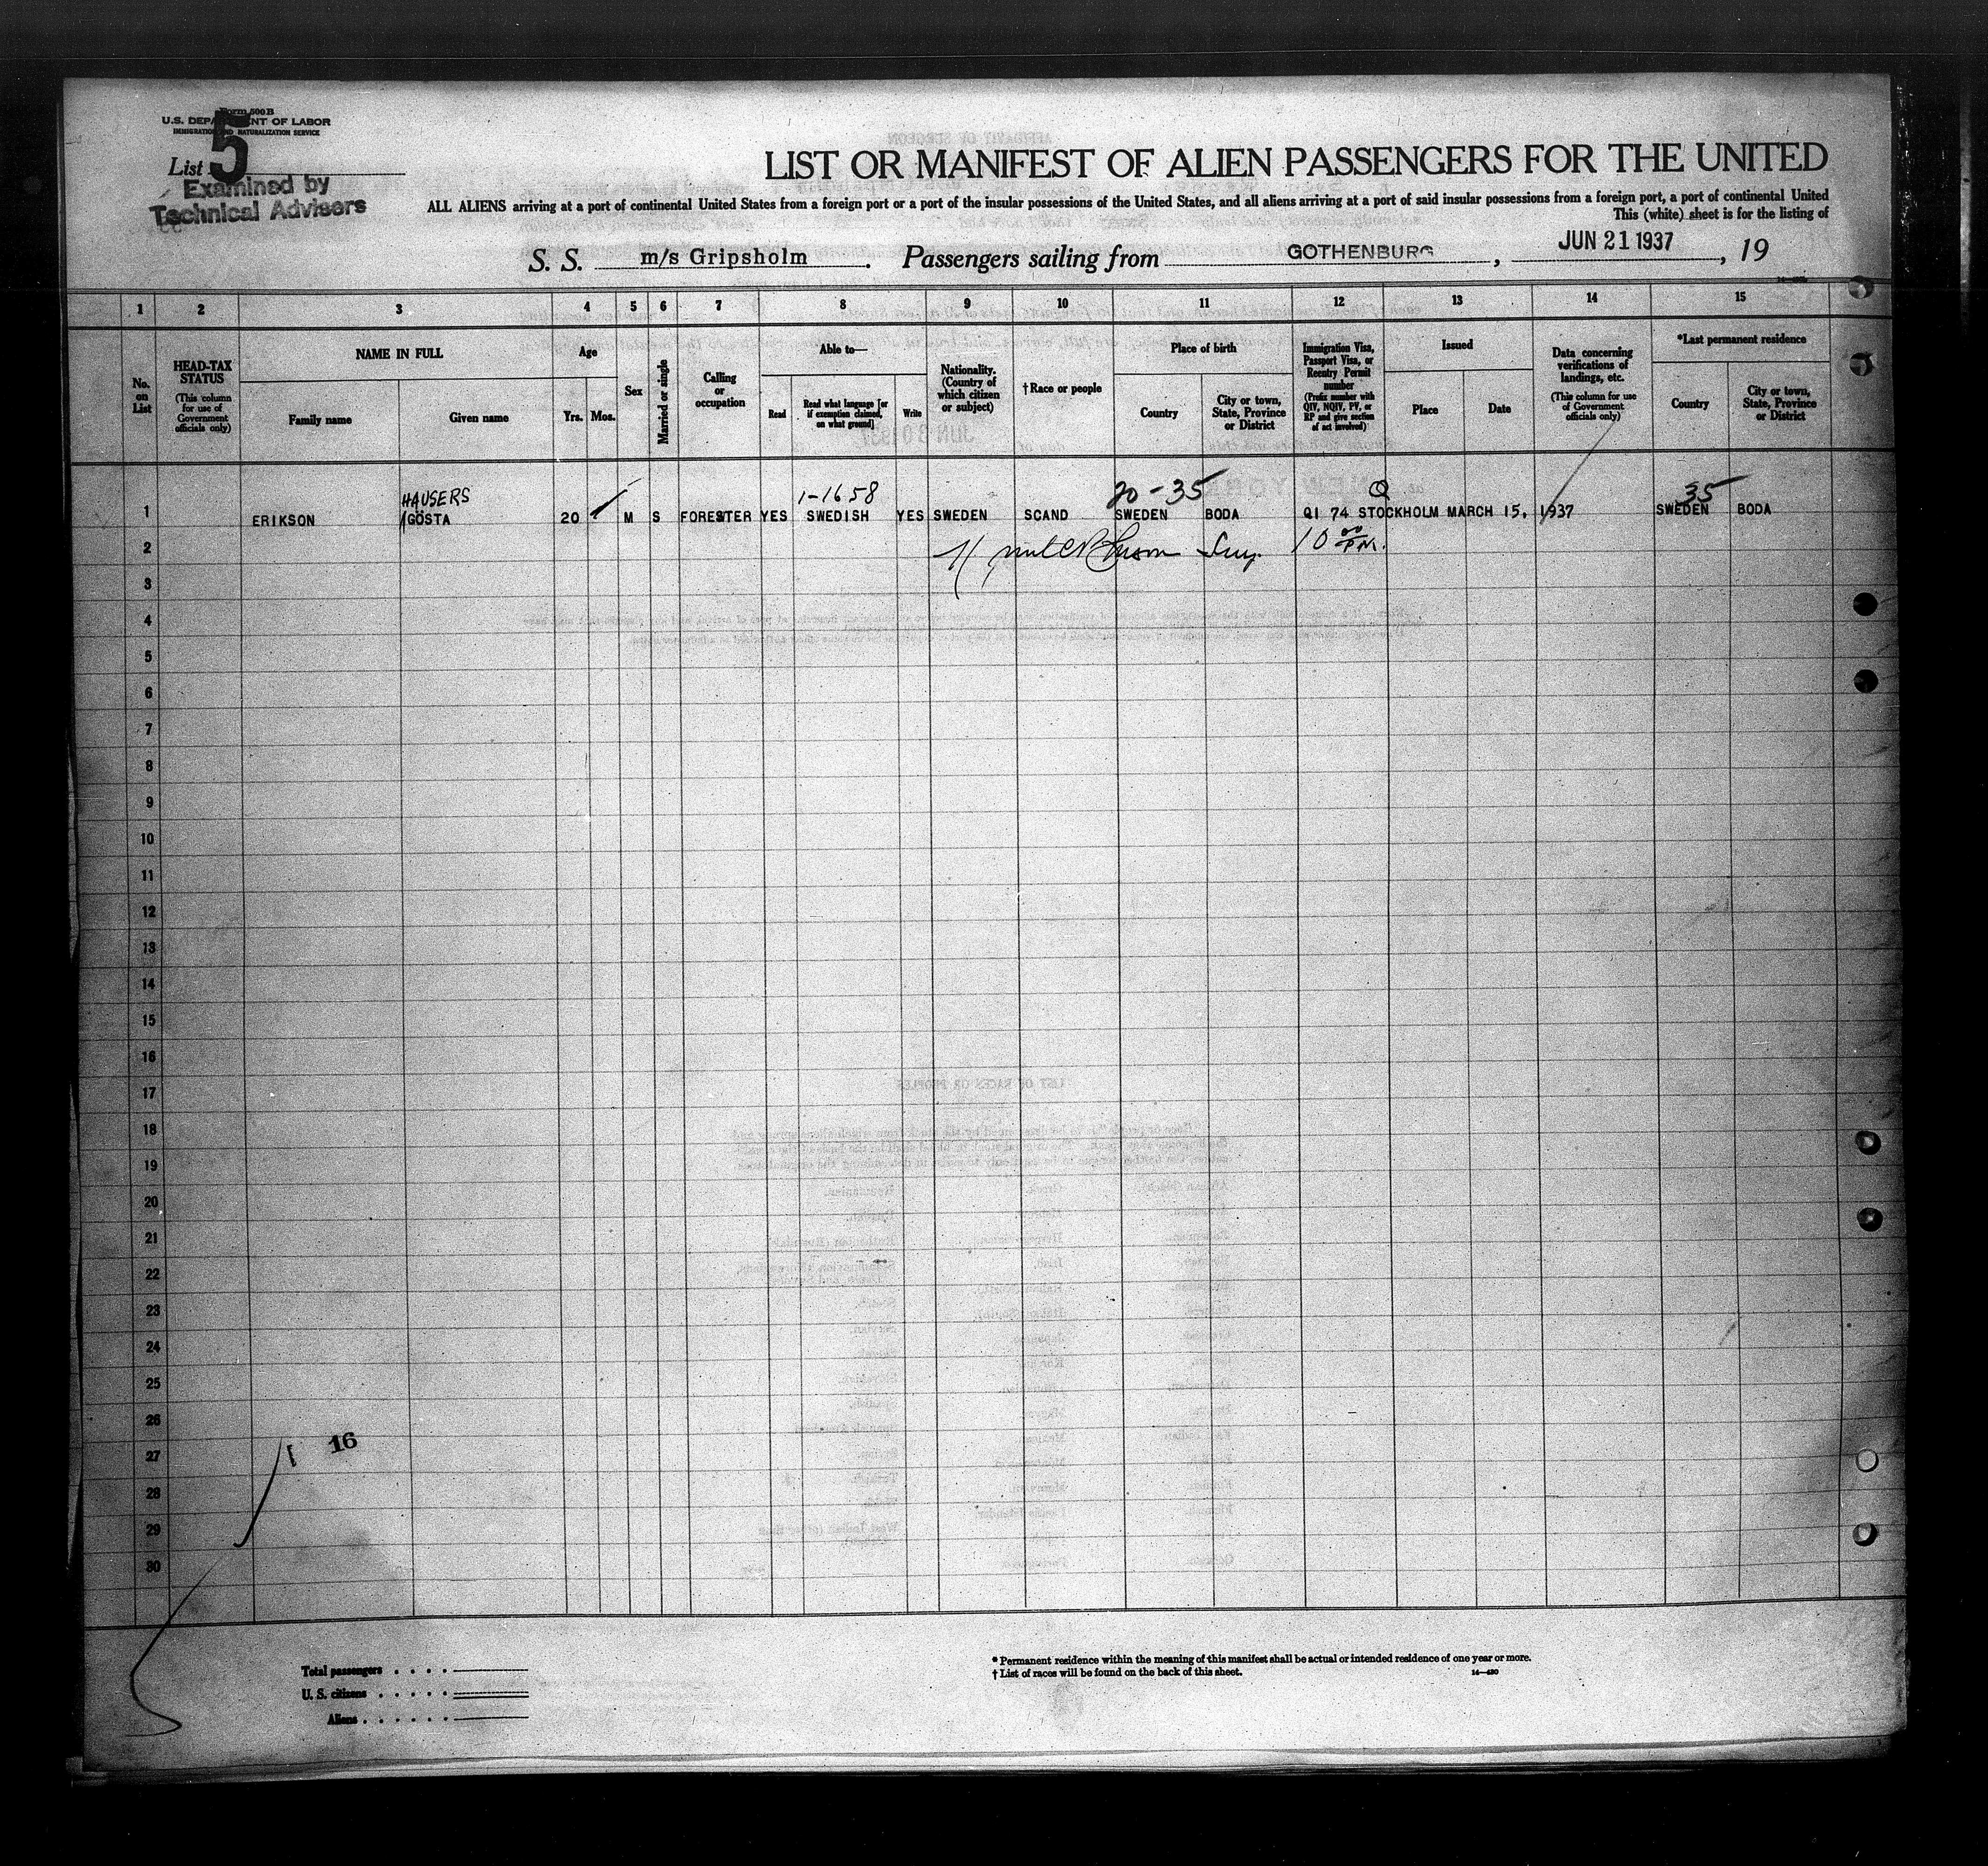 Form 500 B
U.S. DEPARTMENT OF LABOR
IMMIGRATION AND NATURALIZATION SERVICE
List 5
Examined by
Technical Advisers
LIST OR MANIFEST OF ALIEN PASSENGERS FOR THE UNITED
ALL ALIENS arriving at a port of continental United States from a foreign port or a port of the insular possessions of the United States, and all aliens arriving at a port of said insular possessions from a foreign port, a port of continental United
This (white) sheet is for the listing of
S. S. m/s Gripsholm. Passengers sailing from GOTHENBURG, JUN 21 1937, 19
1 2 3 4 5 6 7 8 9 10 11 12 13 14 15
No. on List
HEAD-TAX STATUS
(This column for use of Government officials only)
NAME IN FULL
Family name
Given name
Age
Yrs. Mos.
Sex
Married or single
Calling or occupation
Able to—
Read
Read what language [or if exemption claimed, on what ground]
Write
Nationality. (Country of which citizen or subject)
†Race or people
Place of birth
Country
City or town, State, Province or District
Immigration Visa, Passport Visa, or Reentry Permit number
(Prefix number with QIV, NQIV, PV, or RP and give section of act involved)
Issued
Place
Date
Data concerning verifications of landings, etc.
(This column for use of Government officials only)
*Last permanent residence
Country
City or town, State, Province or District
HAUSERS 1-1658 20-35 Q 35
1 ERIKSON GÖSTA 20 M S FORESTER YES SWEDISH YES SWEDEN SCAND SWEDEN BODA QI 74 STOCKHOLM MARCH 15, 1937 SWEDEN BODA
2 10 00 PM.
3
4
5
6
7
8
9
10
11
12
13
14
15
16
17
18
19
20
21
22
23
24
25
26
16
27
28
29
30
Total passengers
U. S. citizens
Aliens
* Permanent residence within the meaning of this manifest shall be actual or intended residence of one year or more.
† List of races will be found on the back of this sheet.
14—430